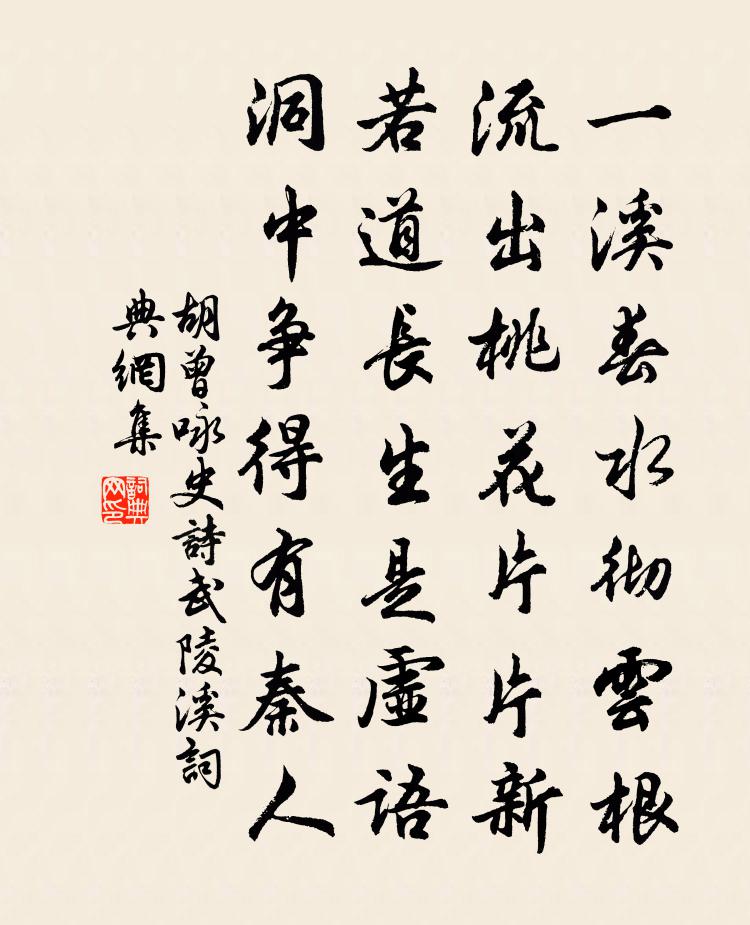 一溪春水彻雲根
流出桃花片片新
若道長生是虛語
洞中争得有秦人
胡曾咏史詩武陵溪詞
典網集
詞典
网印